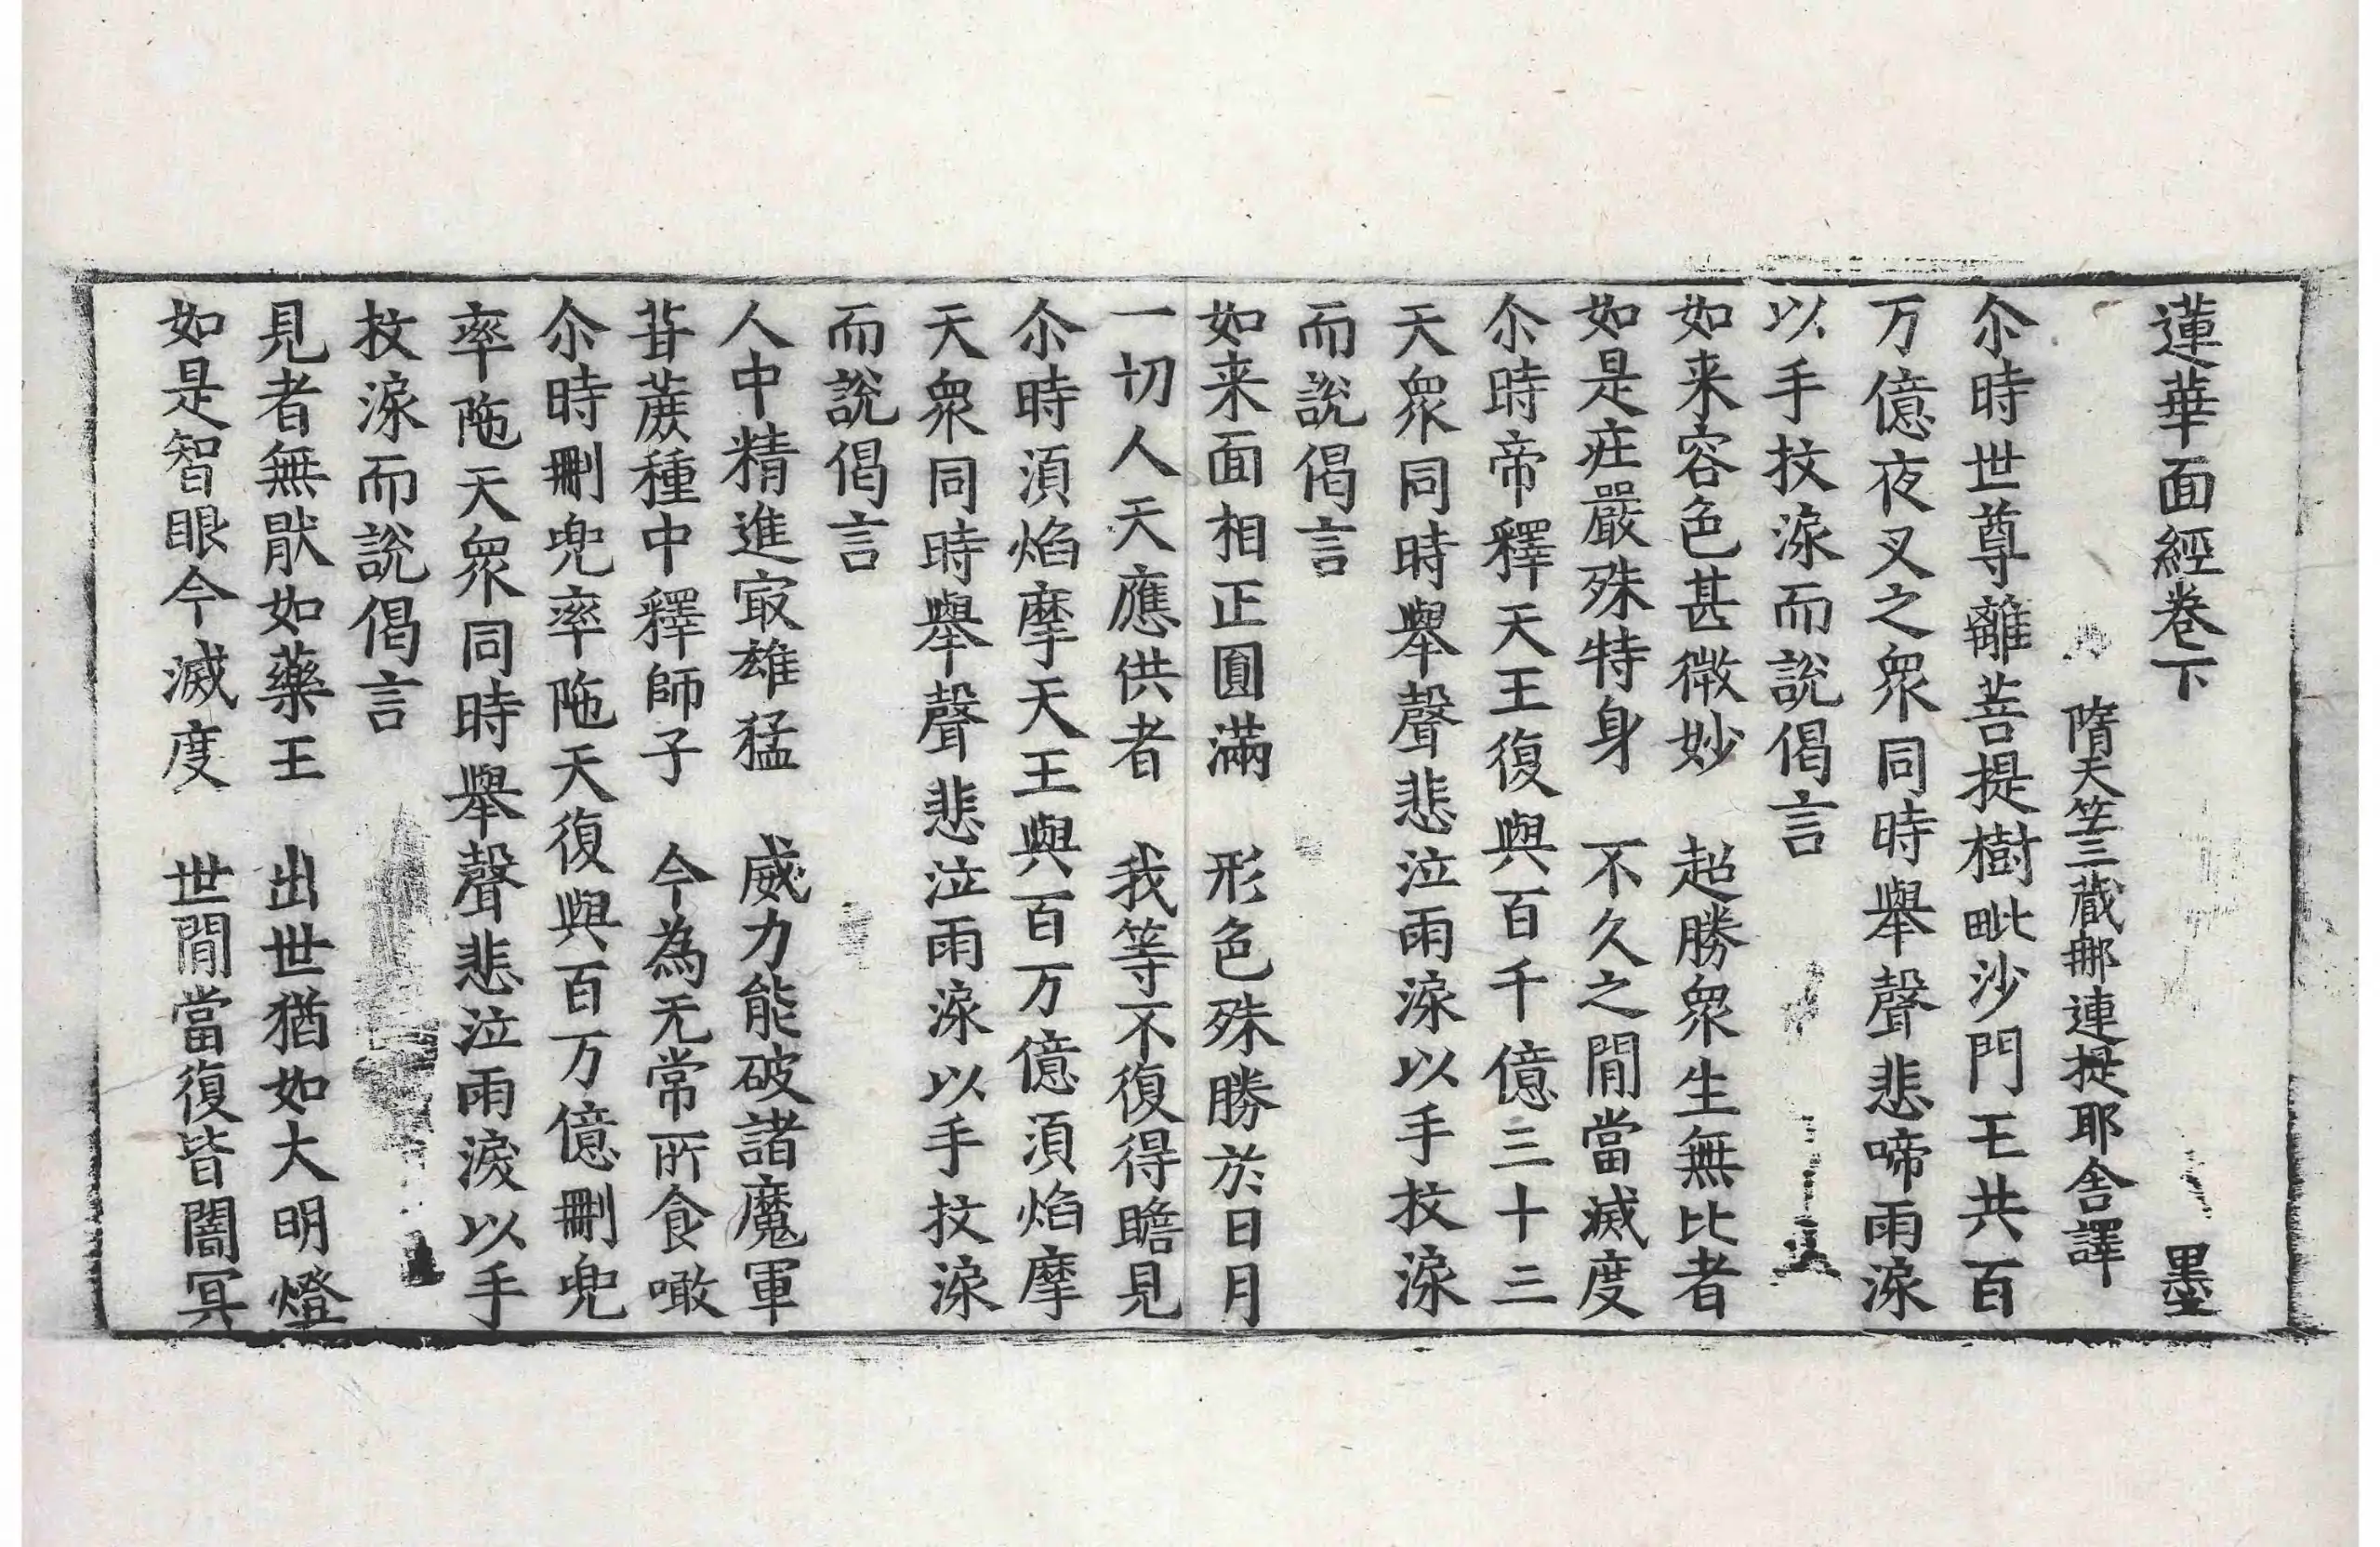 蓮華面經卷下　墨
隋天竺三藏那連提耶舍譯
尒時世尊離菩提樹毗沙門王共百
万億夜叉之衆同時舉聲悲啼雨淚
以手抆淚而說偈言
如来容色甚微妙　超勝衆生無比者
如是庄嚴殊特身　不久之閒當滅度
尒時帝釋天王復與百千億三十三
天衆同時舉聲悲泣雨淚以手抆淚
而說偈言
如来面相正圓滿　形色殊勝於日月
一切人天應供者　我等不復得瞻見
尒時須焰摩天王與百万億須焰摩
天衆同時舉聲悲泣雨淚以手抆淚
而說偈言
人中精進冣雄猛　威力能破諸魔軍
苷蔗種中釋師子　今為无常所食噉
尒時刪兜率陁天復與百万億刪兜
率陁天衆同時舉聲悲泣雨淚以手
抆淚而說偈言
見者無猒如藥王　出世猶如大明燈
如是智眼今滅度　世閒當復皆闇冥